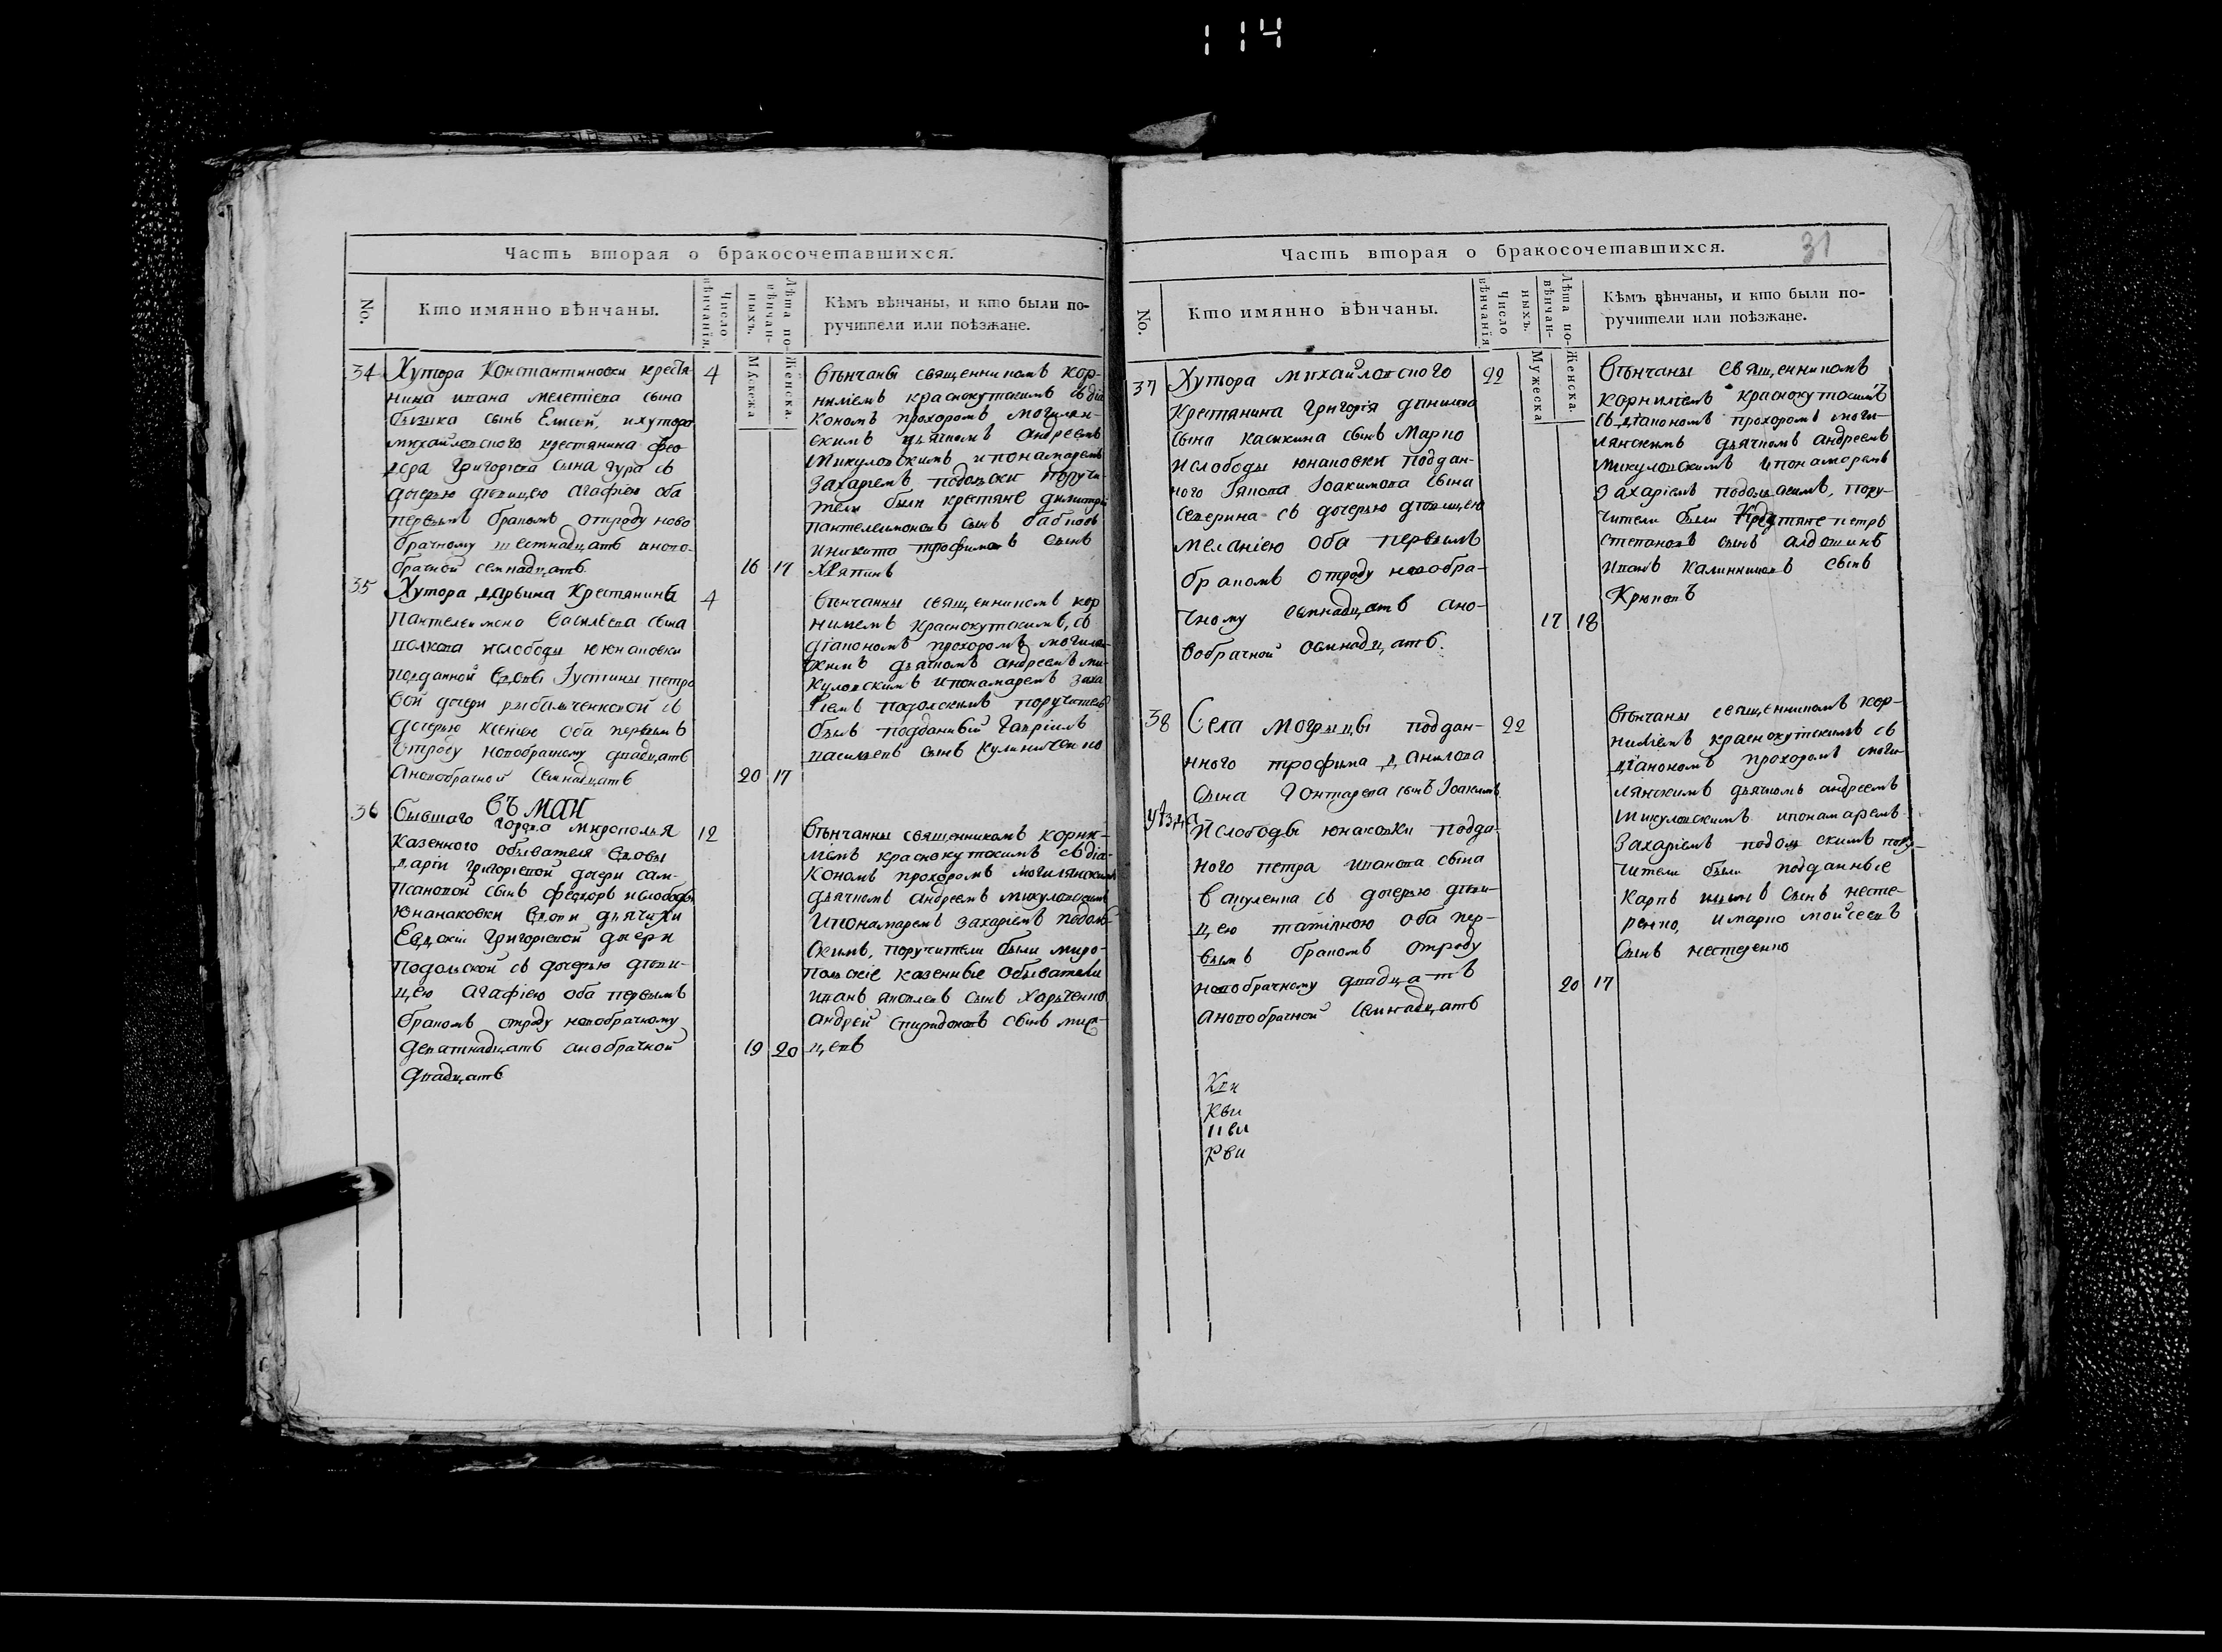 114
Часть вторая о бракосочетавшихся.
No.
Кто имянно вѣнчаны.
Число вѣнчанія.
Лѣта по-
вѣнчан-
ныхъ.
Мужеска
Женска.
Кѣмъ вѣнчаны, и кто были по-
ручители или поѣзжане.
34
Хутора Константиновки крестя
нина ивана мелетіева сына
сынъ Елисей, ихутора
михайловского крестянина Фео
дора Григоріева сына гура съ
дочерью девицею агафіею оба
первымъ бракомъ отроду ново
брачному шестнадцать аново-
брачной семнадцать
4
16 17
Вѣнчаны священникомъ кор-
ниліемъ краснокутскимъ съдіа
кономъ прохоромъ могилян-
скимъ дьячкомъ андреемъ
микуловскимъ ипонамаремъ
захаріемъ подольски поручи-
тели были крестяне димитрій
пантелеимоновъ сынъ
иникита трофимовъ сынъ
35
Хутора дарьина Крестянина
Пантелеимона василева сына
волкова ислободы ююнаковки
подданной вдовы Іустины петро
вой дочери рыбалченковой съ
дочерью ксеніею оба первымъ
отроду новобрачному двадцать
ановобрачной семнадцать
4
20 17
Вѣнчанны священникомъ кор
ниліемъ краснокутскимъ, съ
діакономъ прохоромъ могилян
скимъ дьячкомъ андреемъ ми-
куловскимъ ипонамаремъ заха
ріемъ подолскимъ поручитель
былъ подданный гавріилъ
василевъ сынъ кулиниченко
въ маи
36
бывшаго города мирополья
казенного обывателя вдовы
даріи григоріевой дочери сам-
псановой сынъ феодоръ ислободы
Юнанаковки вдови дьячихи
Евдокіи Григоріевой дочери
подольской съ дочерью деви-
цею агафіею оба первымъ
бракомъ отроду новобрачному
девятнадцать анобрачной
двадцать
12
19 20
Вѣнчанны священникомъ корни-
ліемъ краснокутскимъ съдіа-
кономъ прохоромъ могилянскимъ
дьячкомъ андреемъ микуловскимъ
ипонамаремъ захаріемъ подоль-
скимъ, поручители были миро-
польскіе казенные обыватели
иванъ яковлевъ сынъ Харьченко
андрей спиридоновъ сынъ
цевъ
Часть вторая о бракосочетавшихся.
31
No.
Кто имянно вѣнчаны.
Число вѣнчанія
Лѣта по-
вѣнчан-
ныхъ.
Мужеска
Женска.
Кѣмъ вѣнчаны, и кто были по-
ручители или поѣзжане.
37
Хутора михайловского
крестянина Григорія данилова
сына касикина сынъ Марко
ислободы юнаковки поддан-
ного Іякова Іоакимова сына
северина съ дочерью девицею
меланіею оба первымъ
бракомъ отроду новобра-
чному семнадцать ано-
вобрачной осмнадцать.
22
17 18
Вѣнчаны священникомъ
корниліемъ краснокутскимъ
съ діакономъ прохоромъ моги-
лянскимъ дьячкомъ андреемъ
микуловскимъ ипонамаремъ
захаріемъ подольскимъ, пору-
чители были крестяне петръ
степановъ сынъ алдошинъ
иванъ калинниковъ сынъ
Крюковъ
38
Села могрицы поддан-
нного трофима данилова
сына гонтарева сынъ Іоакимъ
уѣзда
ислободы юнаковки подда-
ного петра иванова сына
вакуленка съ дочерью деви-
цею татіяною оба пер-
вымъ бракомъ отроду
новобрачному двадцать
ановобрачной семнадцать
22
20 17
Вѣнчаны священникомъ кор-
ниліемъ краснокутскимъ съ
діакономъ прохоромъ моги-
лянскимъ дьячкомъ андреемъ
микуловскимъ ипонамаремъ
захаріемъ подольскимъ пору-
чители были подданные
карпъ сынъ несте-
ренко, имарко мойсеевъ
сынъ нестеренко